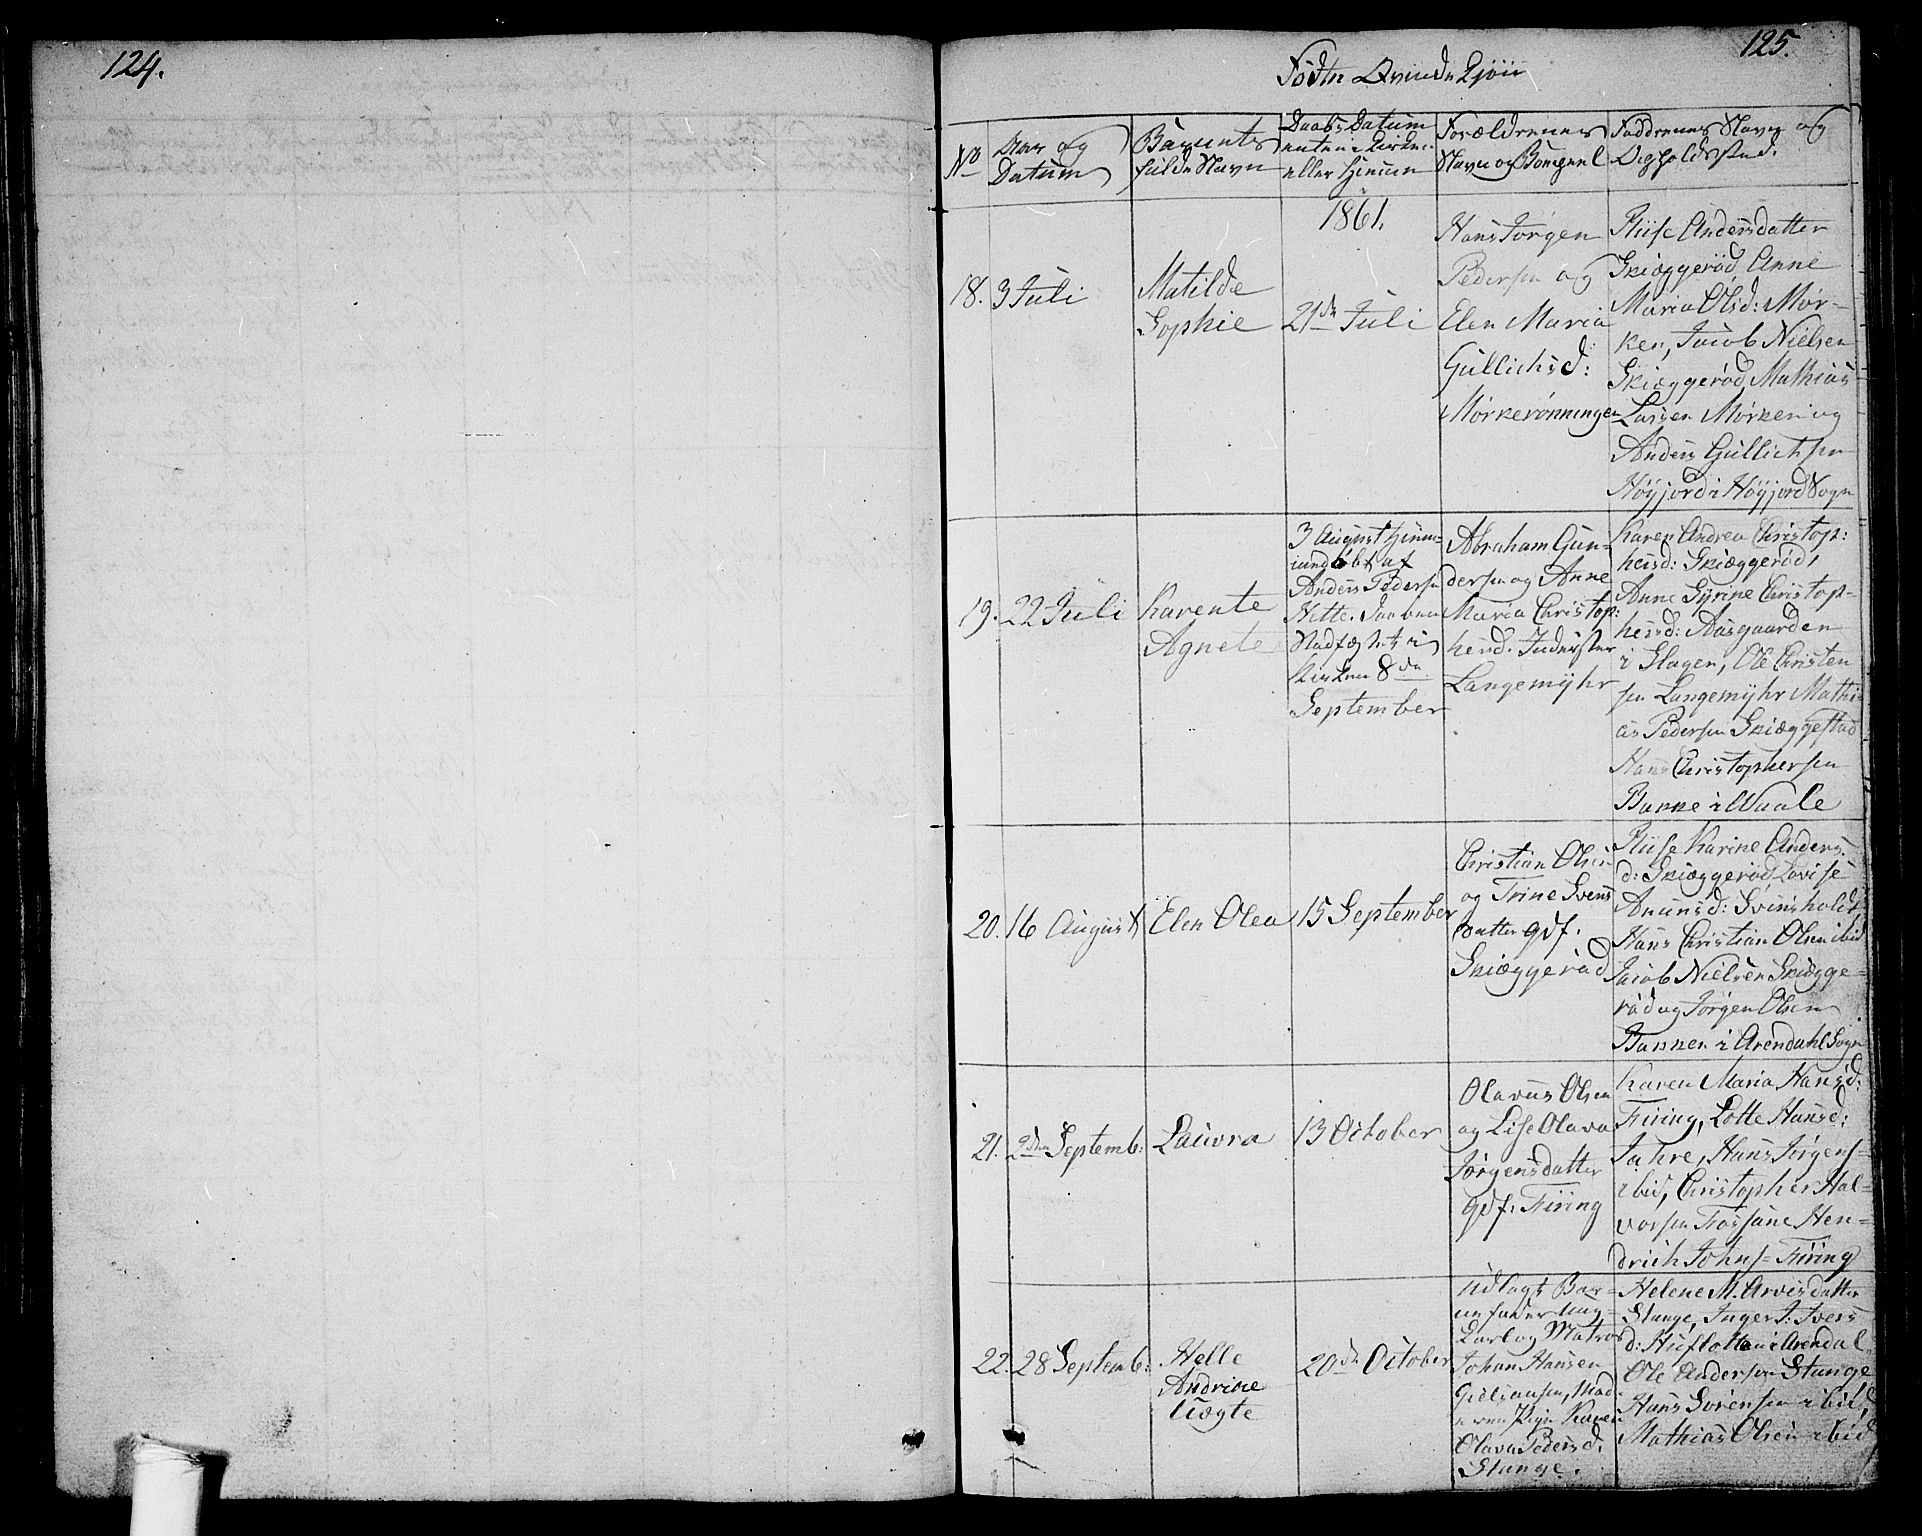 124.
125.
Fødte Qvinde Kjøn
No
Aar og
Datum
Barnets
fulde Navn
Daabs Datum
enten i Kirken
eller Hjemme
Forældrenes
Navn og Boepæl
Faddrenes Navn og
Opholdssted.
1861.
18.
3 Juli
Matilde
Sophie
21de Juli
Hans Jørgen
Pedersen og
Elen Maria
Gullichsd:
Mørkerønningen
Andersdatter
Skiæggerød, Anne
Maria Olsd: Mør-
ken, Jacob Nielsen
Skiæggerød, Mathias
Larsen Mørken og
Anders Gullichsen
Høyjord i Høyjord Sogn
19.
22 Juli
Karente
Agnete
3 August Hjem-
medøbt af
Anders Pedersen
Hitte. Daaben
Stadfæstet i
Kirken 8de
September
Abraham Gun-
dersen og Anne
Maria Christop:
hersd. Inderster
Langemyhr
Karen Andrea Christop:
hersd: Skiæggerød,
Anne Syrine Christop-
hersd: Aasgaarden
i Slagen, Ole Christen
sen Langemyhr Mathi-
as Pedersen Skiæggestad
Hans Christophersen
Bakke i Vaale
20.
16 August
Elen Olea
15 September
Christian Olsen
og Trine Svens
datter gdf.
Skiæggerød
Karine Anders
d: Skiæggerød Lovise
Amunsd: Svinsholt,
Hans Christian Olsen ibid
Jacob Nielsen Skiægge-
rød og Jørgen Olsen
Bakken i Arendahl Sogn
21.
2den Septemb:
Lauvra
13 October
Olavus Olsen
og Lise Olava
Jørgensdatter
gdf: Firing
Karen Maria Hansd:
Firing, Lotte Hansd:
Jahre, Hans Jørgens-
ibid, Christopher Hal-
vorsen Fossane Hen-
drich Johns- Firing
22.
28 Septemb:
Helle
Andrine
20de October
Udlagt Bar-
nefader Ung-
karl og Matros
Johan Hansen
Mod
eren Pige Karen
Olava Pedersd.
Stange.
Helene M. Arvesdatter
Stange, Inger J. Ivers
d: i Arendal
Ole Andersen Stange
Hans Sørensen ibid,
Mathias Olsen ibid